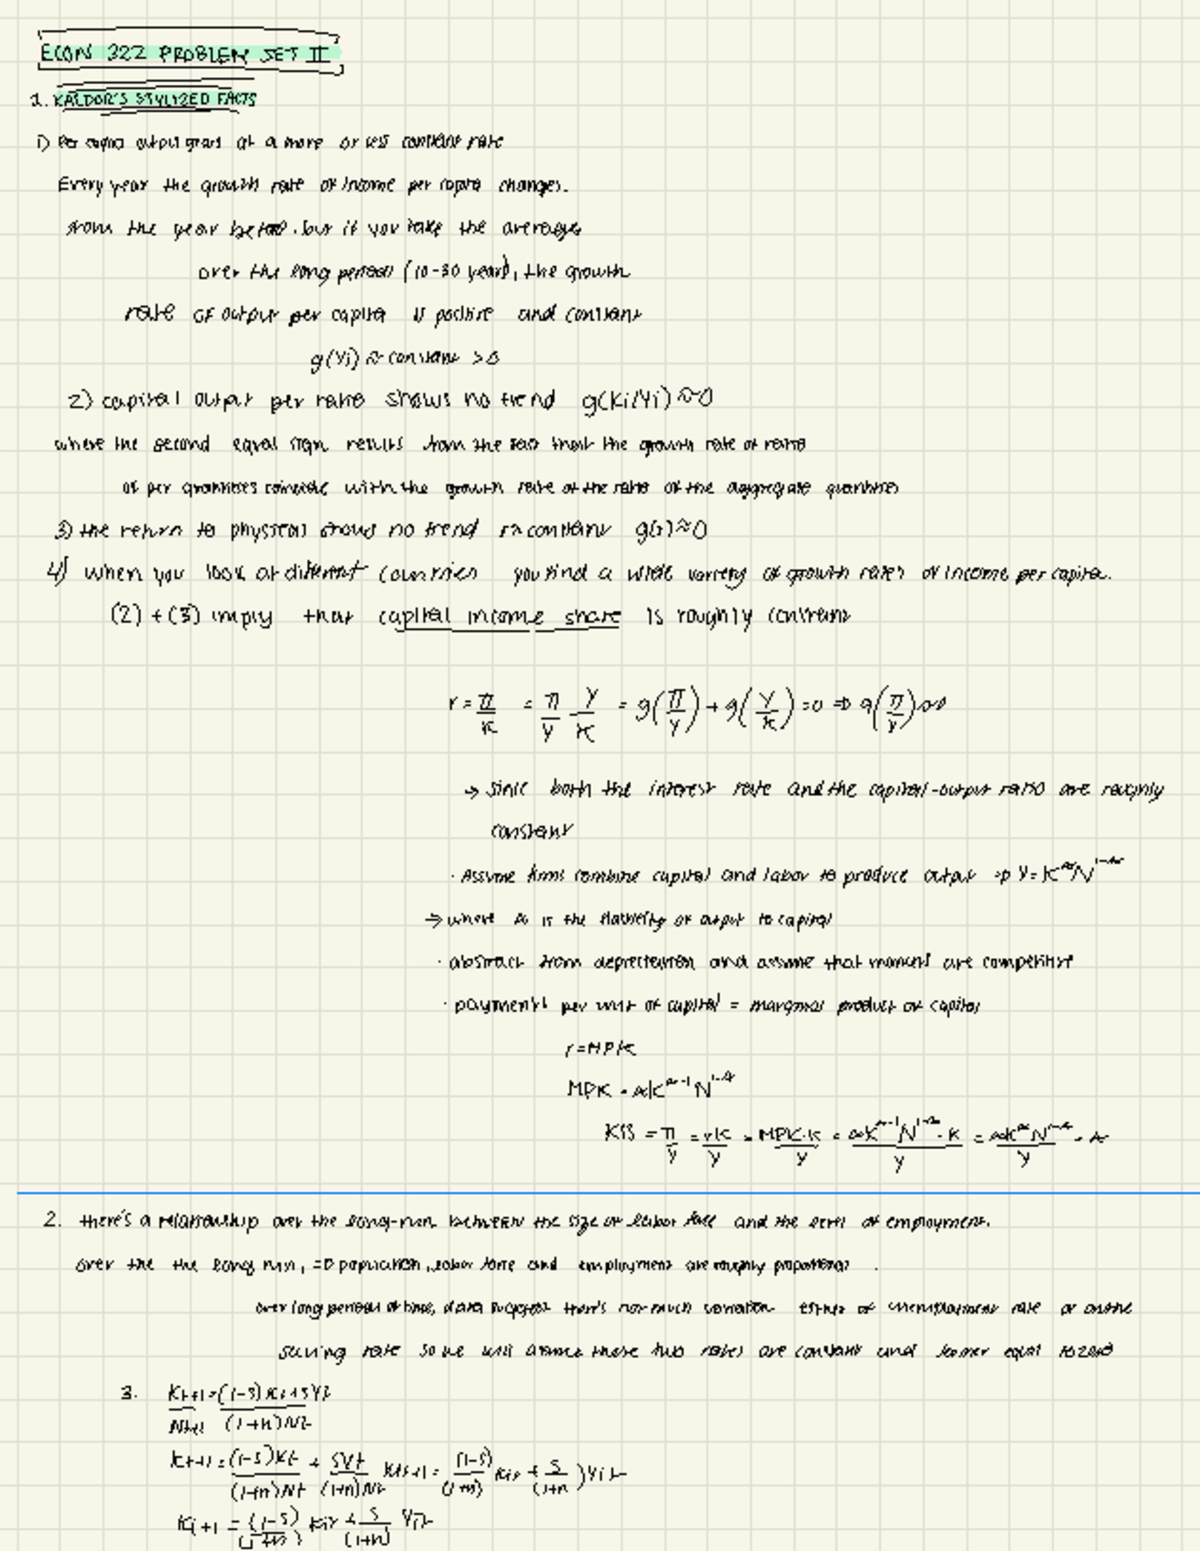 ECON 322 PROBLEM SET II
1. KALDOR'S STYLIZED FACTS
1) Per capita output grows at a more or less constant rate
Every year the growth rate of income per capita changes.
from the year before. but if you take the averages
over the long period (10-30 years), the growth
rate of output per capita is positive and constant
g(Yi) ≈ constant >0
2) capital output per ratio shows no trend g(Ki/Yi) ≈0
where the second equal sign results from the fact that the growth rate of ratio
of per quantities coincide with the growth rate of the ratio of the aggregate quantities
3) the return to physical shows no trend r≈constant g(r)≈0
4) when you look at different countries you find a wide variety of growth rates of income per capita.
(2) + (3) imply that capital income share is roughly constant
r = π/K = π/Y Y/K = g(π/Y) + g(Y/K) =0 => g(π/Y) ≈0
→ Since both the interest rate and the capital-output ratio are roughly
constant
· Assume firms combine capital and labor to produce output => Y=K^αN^1-α
→ where α is the elasticity of output to capital
· abstract from depreciation and assume that markets are competitive
· payments per unit of capital = marginal product of capital
r=MPK
MPK = αK^α-1 N^1-α
KIS = π/Y = rK/Y = MPK·K/Y = αK^α-1N^1-α·K/Y = αK^αN^1-α/Y = α
2. there's a relationship over the long-run between the size of labor force and the level of employment.
over the the long run, => population, labor force and employment are roughly proportional .
over long periods of time, data suggest there's not much variation either of unemployment rate or on the
saving rate so we will assume these two rates are constant and former equal to zero
3. Kt+1/Nt+1 = (1-δ)Kt+sYt/(1+n)Nt
Kt+1 = (1-δ)Kt/(1+n)Nt + sYt/(1+n)Nt Kit+1 = (1-δ)/(1+n) Kit + s/(1+n) ) Yit
Ki+1 = (1-δ)/(1+n) Kit + s/(1+n) Yit